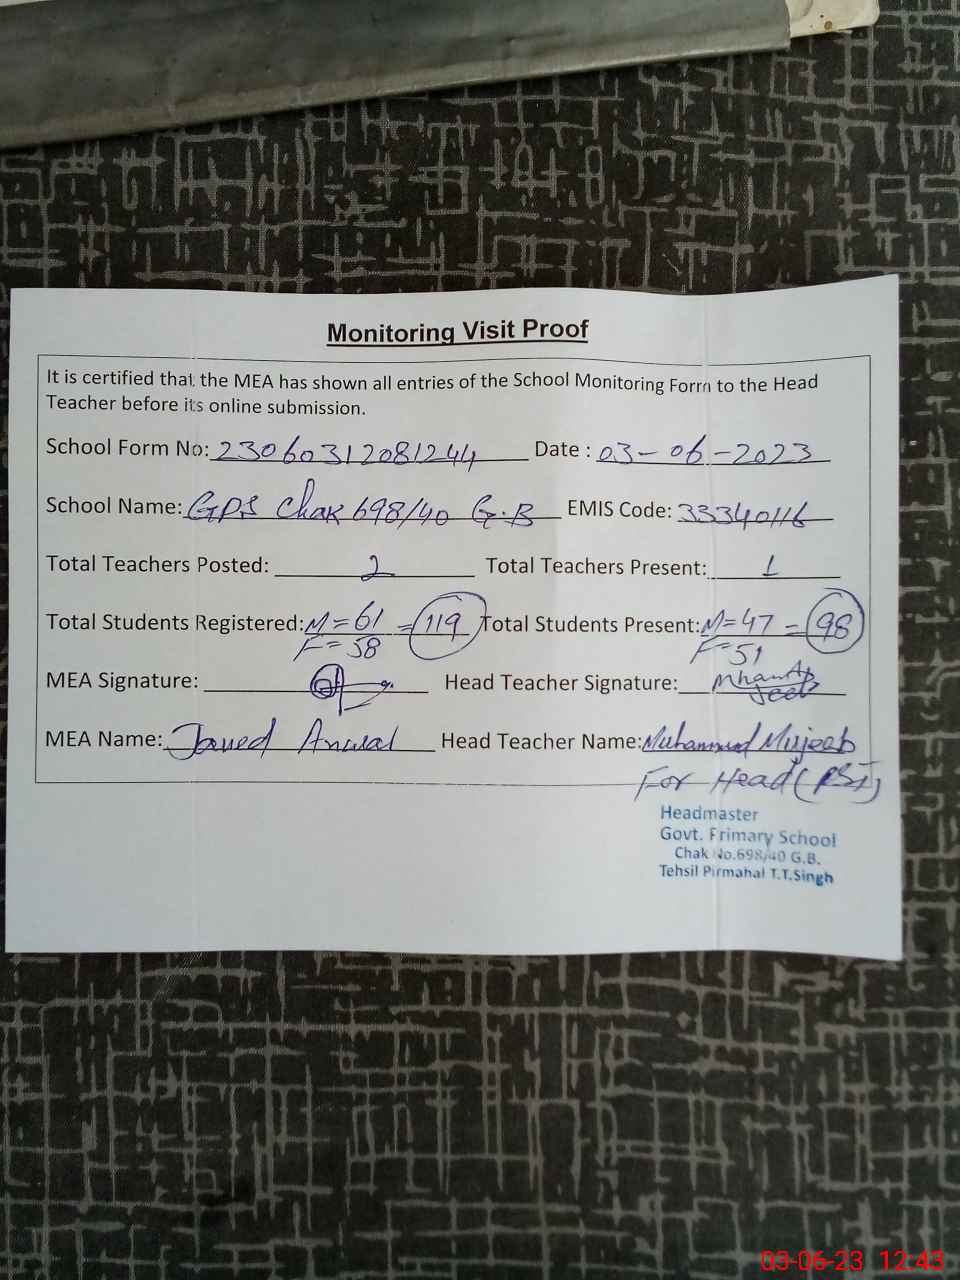 Monitoring Visit Proof
It is certified that the MEA has shown all entries of the School Monitoring Form to the Head
Teacher before its online submission.
School Form No: 23060312081244 Date : 03-06-2023
School Name: GPS Chak 698/40 G.B EMIS Code: 33340116
Total Teachers Posted: 2 Total Teachers Present: 1
Total Students Registered: M=61 = 119 Total Students Present: M=47 = 98
F=58 F=51
MEA Signature: Head Teacher Signature:
MEA Name: Javed Anwal Head Teacher Name: Muhammad Mujeeb
For Head (PST)
Headmaster
Govt. Primary School
Chak No.698/40 G.B.
Tehsil Pirmahal T.T.Singh
03-06-23 12:43